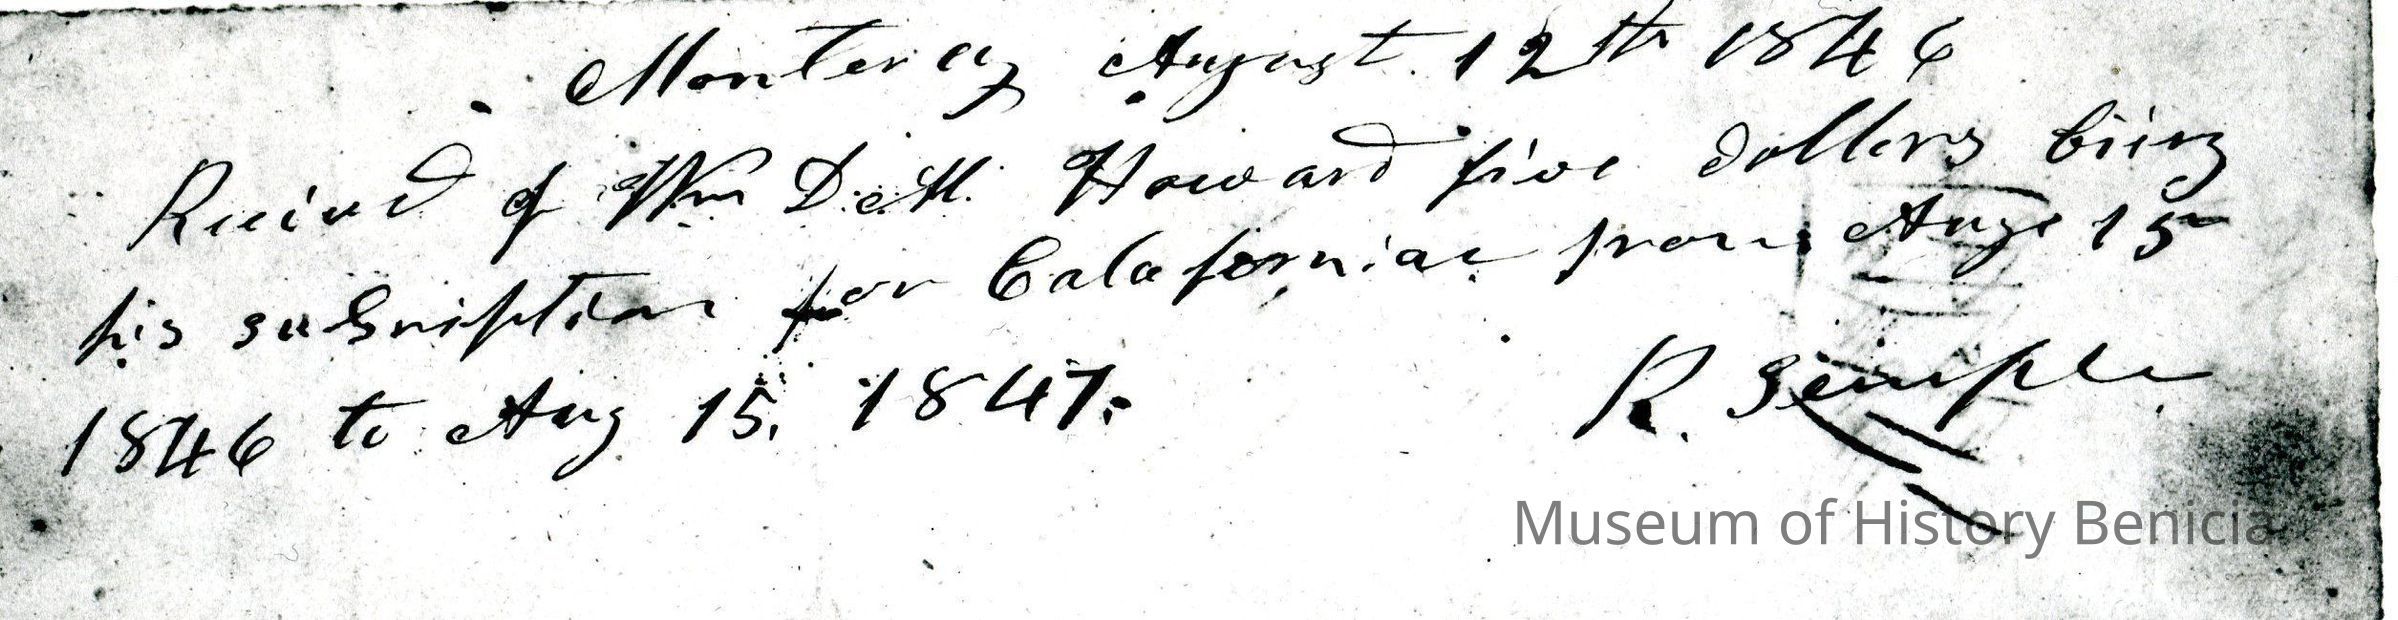 Monterey August 12th 1846
Recived of Wm D. M. Howard five dollers being
his subscription for Calafornian from Aug 15
1846 to Aug 15, 1847.
R. Semple
Museum of History Benicia